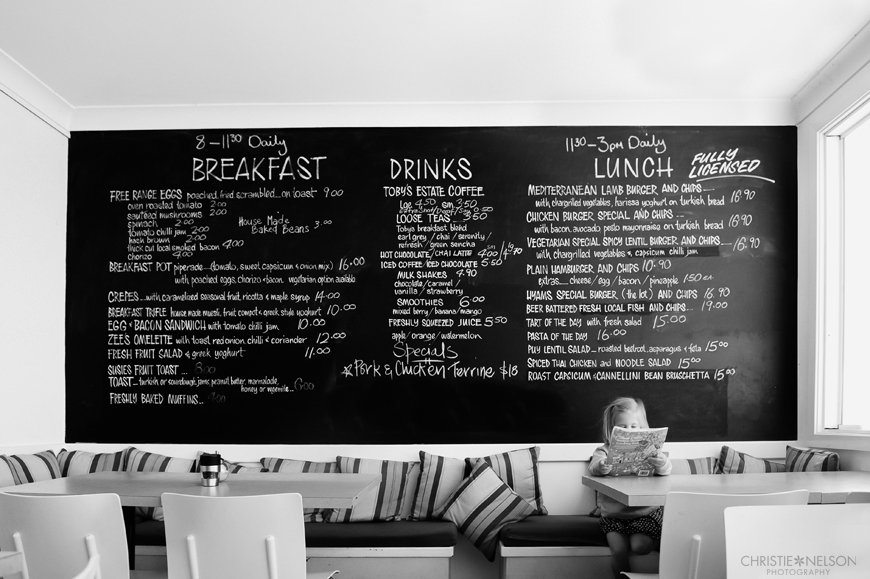 8-11³⁰ Daily
BREAKFAST
FREE RANGE EGGS poached, fried, scrambled... on toast 9.00
oven roasted tomato 2.00
sauteed mushrooms 2.00
spinach 2.00
tomato chilli jam 2.00
hash brown 2.00
thick cut local smoked bacon 4.00
chorizo 4.00
House Made
Baked Beans 3.00
BREAKFAST POT piperade... (tomato, sweet capsicum & onion mix) 16.00
with poached eggs, chorizo & bacon. vegetarian option available
CREPES... with caramelized seasonal fruit, ricotta & maple syrup 14.00
BREAKFAST TRIFLE house made muesli, fruit compot & greek style yoghurt 10.00
EGG & BACON SANDWICH with tomato chilli jam, 10.00
ZEES OMELETTE with toast, red onion, chilli & coriander 12.00
FRESH FRUIT SALAD & greek yoghurt 11.00
SUSIES FRUIT TOAST ...
TOAST... turkish or sourdough, jams, peanut butter, marmalade,
honey or vegemite... 6.00
FRESHLY BAKED MUFFINS...
DRINKS
TOBY'S ESTATE COFFEE
Lge 4.50 sm 3.50
LOOSE TEAS 3.50
Tobys breakfast blend
earl grey / chai / serenity /
refresh / green sencha
HOT CHOCOLATE / CHAI LATTE
ICED COFFEE / ICED CHOCOLATE 5.50
MILK SHAKES 4.90
chocolate / caramel /
vanilla / strawberry
SMOOTHIES 6.00
mixed berry / banana / mango
FRESHLY SQUEEZED JUICE 5.50
apple / orange / watermelon
Specials
Pork & Chicken Terrine $18
11³⁰-3pm Daily
LUNCH
FULLY
LICENSED
MEDITERRANEAN LAMB BURGER AND CHIPS....
with chargrilled vegetables, harissa yoghurt on turkish bread 16.90
CHICKEN BURGER SPECIAL AND CHIPS ....
with bacon, avocado pesto mayonnaise on turkish bread 16.90
VEGETARIAN SPECIAL SPICY LENTIL BURGER AND CHIPS... 16.90
with chargrilled vegetables & capsicum chilli jam
PLAIN HAMBURGER AND CHIPS 10.90
extras... cheese / egg / bacon / pineapple 1.50 ea
HYAMS SPECIAL BURGER (the lot) AND CHIPS 16.90
BEER BATTERED FRESH LOCAL FISH AND CHIPS... 19.00
TART OF THE DAY with fresh salad 15.00
PASTA OF THE DAY 16.00
PUY LENTIL SALAD... roasted beetroot, asparagus & feta 15.00
SPICED THAI CHICKEN and NOODLE SALAD 15.00
ROAST CAPSICUM & CANNELLINI BEAN BRUSCHETTA 15.00
CHRISTIE NELSON
PHOTOGRAPHY